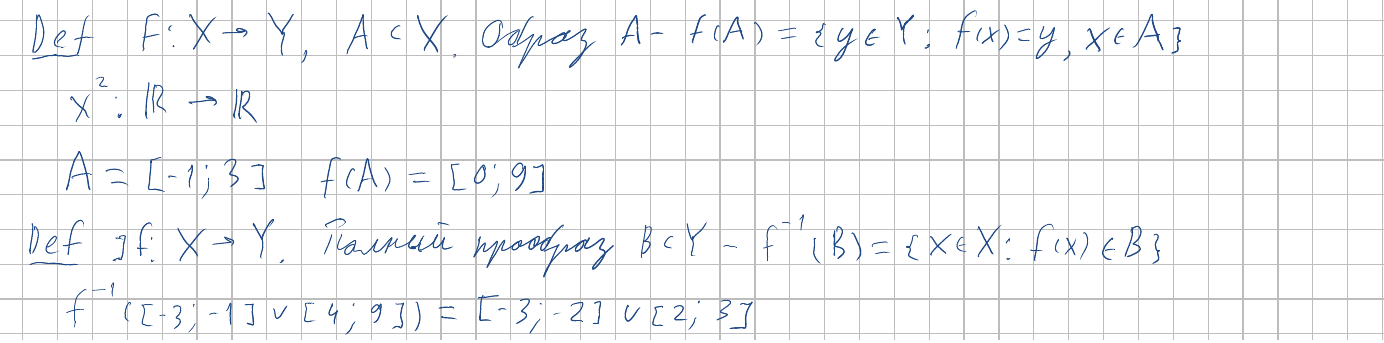 Def F: X → Y, A ⊂ X. Образ A - f(A) = {y ∈ Y: f(x)=y, x ∈ A}
x²: ℝ → ℝ
A = [-1; 3] f(A) = [0; 9]
Def ]f: X → Y. Полный прообраз B ⊂ Y - f⁻¹(B) = {x ∈ X: f(x) ∈ B}
f⁻¹([-3; -1] ∪ [4; 9]) = [-3; -2] ∪ [2; 3]